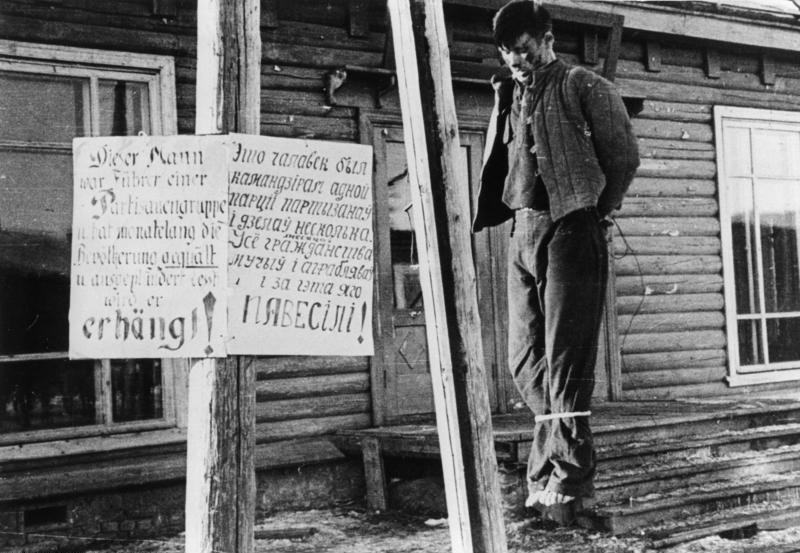 Dieser Mann
war Führer einer
Partisanengruppe
u. hat monatelang die
Bevölkerung gequält
u. ausgeplündert. Jetzt
wird er
erhängt!
Это чалавек был
камандзірам адной
парціі партызанаў
і дзелаў несколька
месецоў
Усё гражданства
мучыў і аграбляваў
і за гэта яго
ПАВЕСІЛІ!